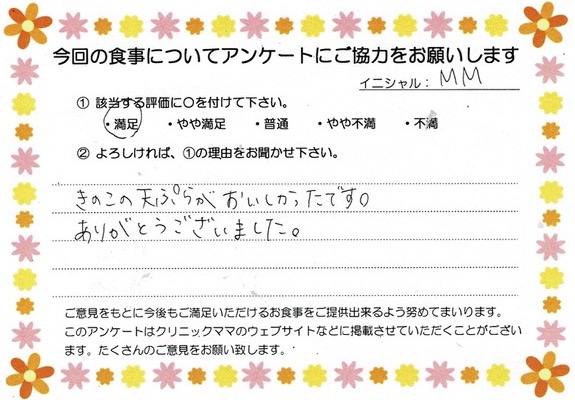 今回の食事についてアンケートにご協力をお願いします
イニシャル： MM
① 該当する評価に〇を付けて下さい。
・満足 ・やや満足 ・普通 ・やや不満 ・不満
② よろしければ、①の理由をお聞かせ下さい。
きのこの天ぷらがおいしかったです。
ありがとうございました。
ご意見をもとに今後もご満足いただけるお食事をご提供出来るよう努めてまいります。
このアンケートはクリニックママのウェブサイトなどに掲載させていただくことがござい
ます。たくさんのご意見をお願い致します。